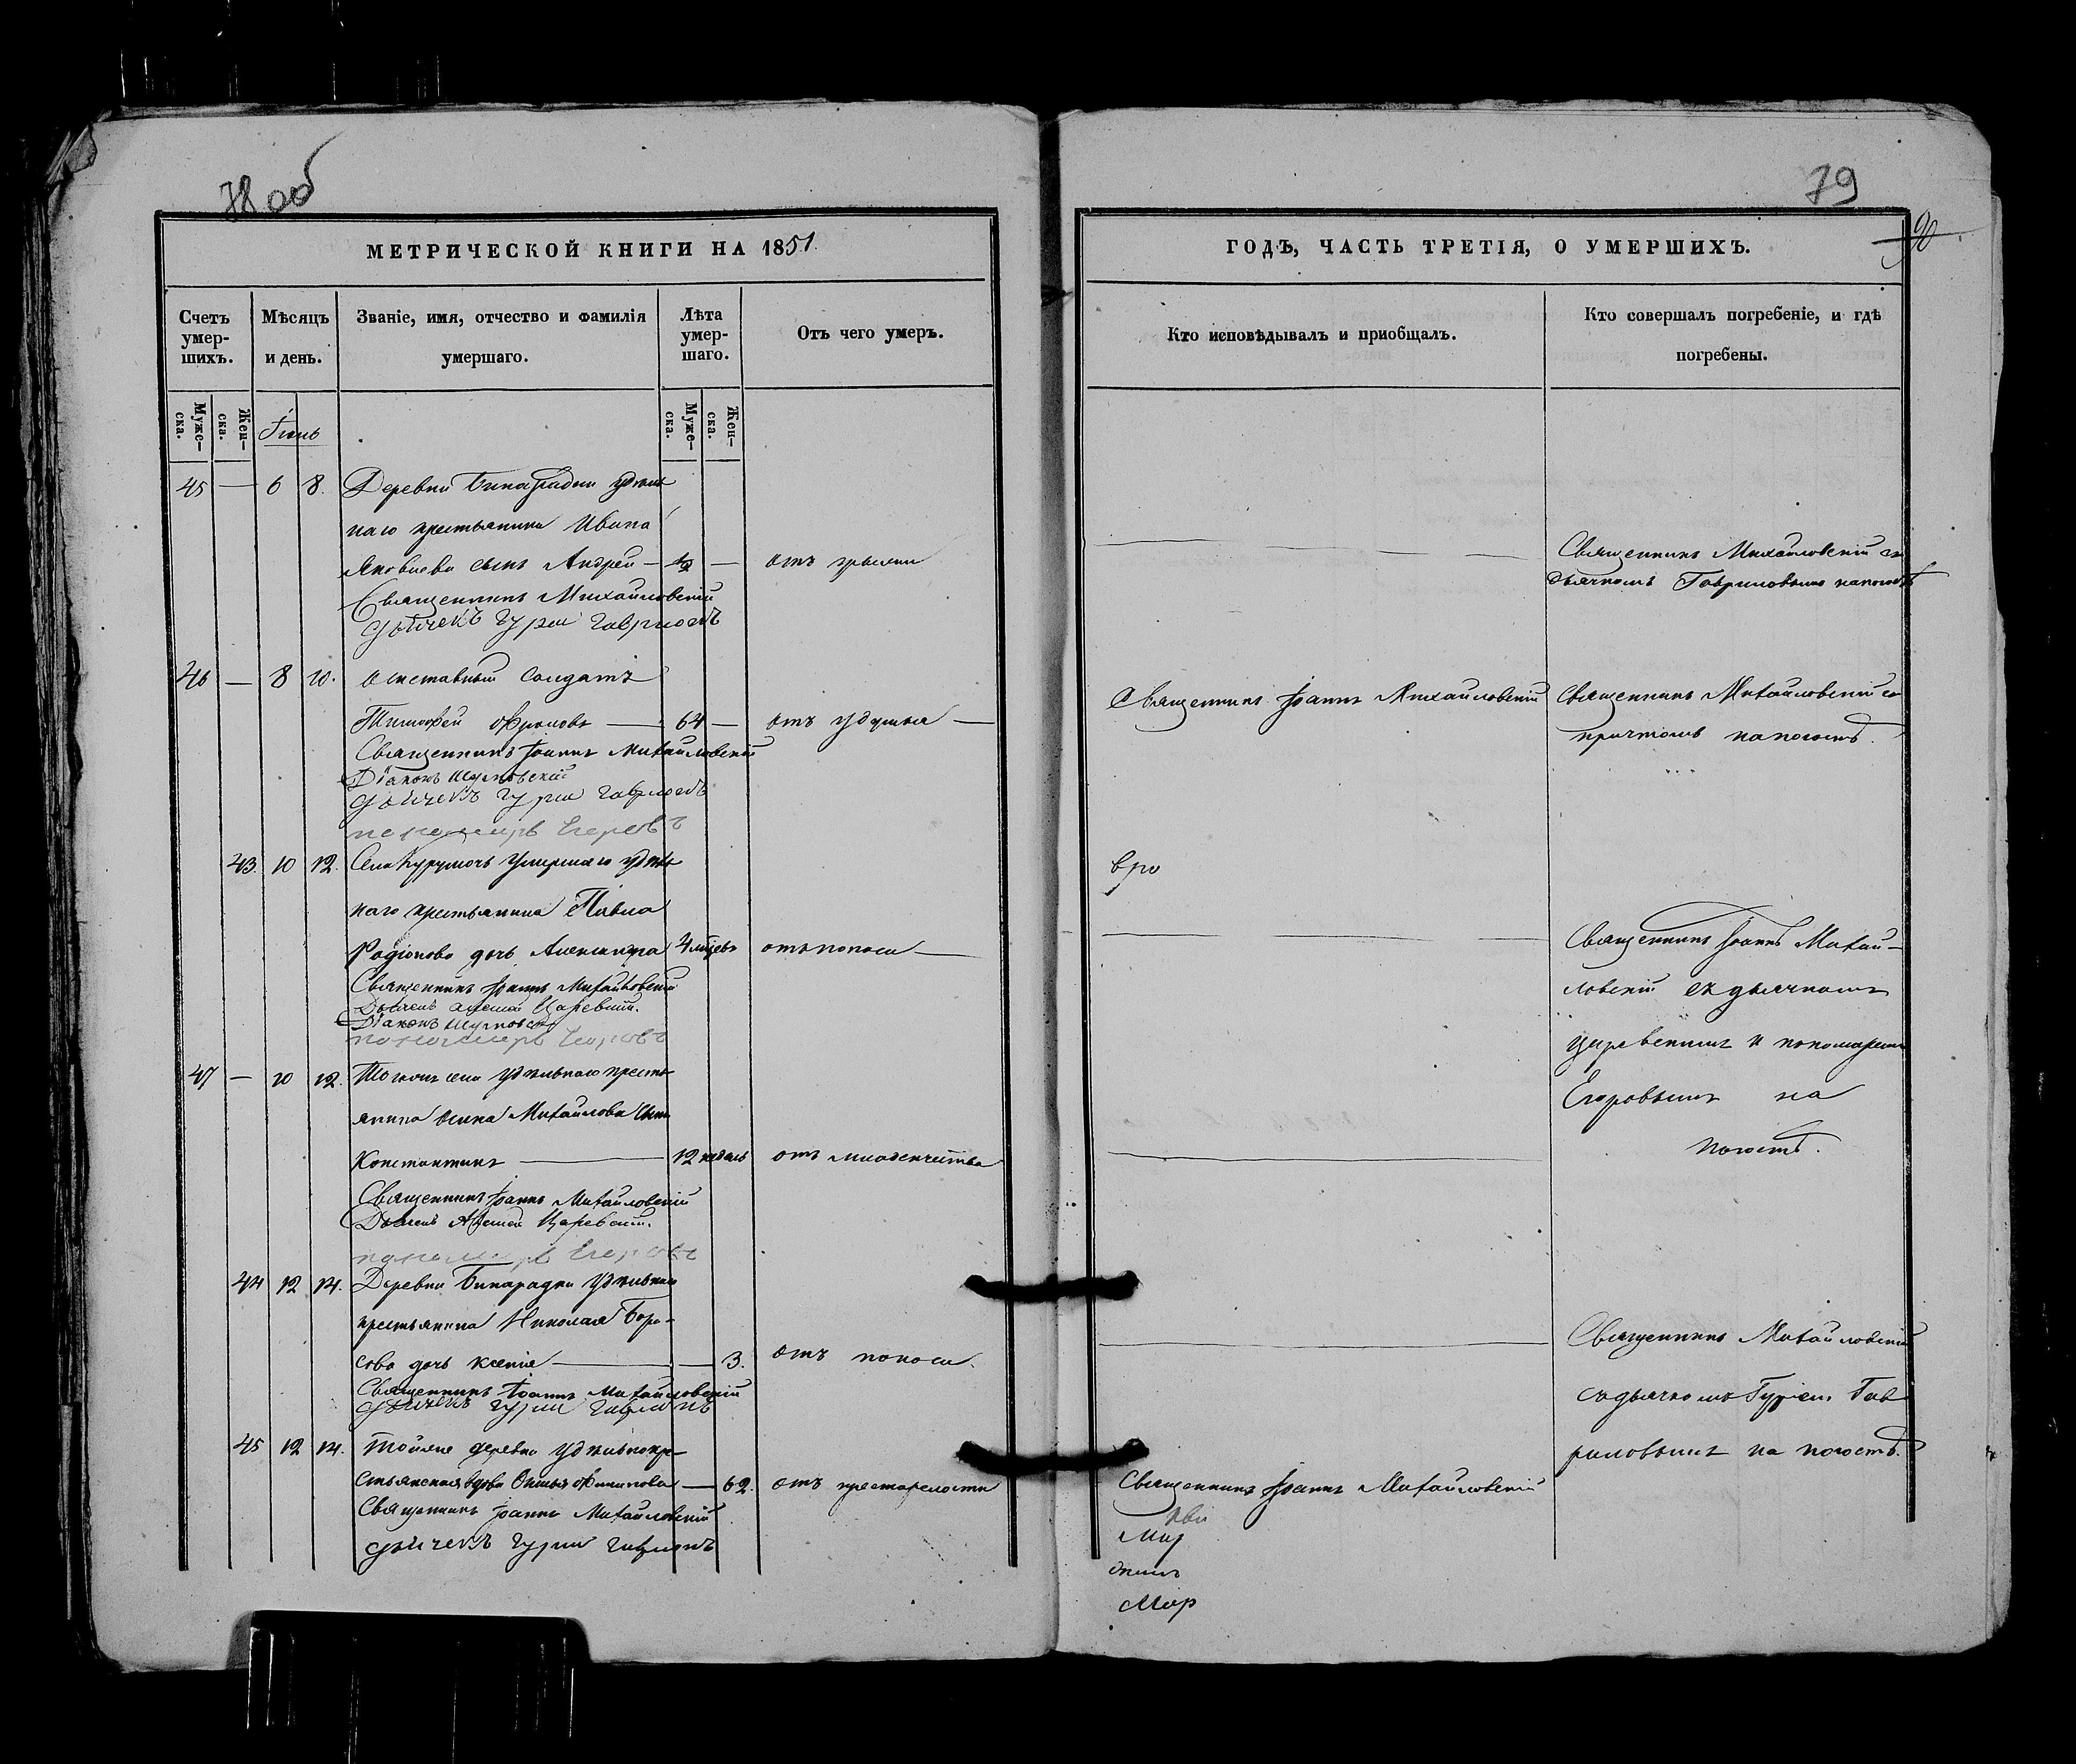 78 об
МЕТРИЧЕСКОЙ КНИГИ НА 1851.
Счетъ умер-шихъ.
Мѣсяцъ и день.
Званіе, имя, отчество и фамилія умершаго.
Лѣта умер-шаго.
Отъ чего умеръ.
Муже-ска.
Жен-ска.
Іюнь
Муже-ска.
Жен-ска.
45 — 6 8. Деревни Бинарадки удѣль
наго крестьянина Ивана
Яковлева сынъ Андрей — — отъ
Священникъ Михайловскій
Дьячекъ Гурій Гавриловъ
46 — 8 10. Отставный солдатъ
Тимофей Фроловъ — 64 — отъ удушья —
Священникъ Іоаннъ Михайловскій
Діаконъ
Дьячекъ Гурій Гавриловъ
пономарь Егоровъ
43. 10 12. Села Курумочъ умершаго удѣль
наго крестьянина Павла
Родіонова дочь Александра 4 мѣсяцъ отъ поноса —
Священникъ Іоаннъ Михайловскій
Дьячекъ Алексѣй Царевскій.
Діаконъ
пономарь Егоровъ
47 — 10 12. Тогожъ села удѣльнаго кресть
янина Осипа Михайлова сынъ
Константинъ — 12 недѣль отъ младенчества
Священникъ Іоаннъ Михайловскій
Дьячекъ Алексѣй Царевскій.
пономарь Егоровъ
44 12 14. Деревни Бинарадки удѣльнаго
крестьянина Николая Бори-
сова дочь Ксенія — — 3. отъ поноса.
Священникъ Іоаннъ Михайловскій
Дьячекъ Гурій Гавриловъ
45 12 14. Тойже деревни удѣльнокре-
стьянская вдова Филипова — 62. отъ престарелости
Священникъ Іоаннъ Михайловскій
Дьячекъ Гурій Гавриловъ
79
90
ГОДЪ, ЧАСТЬ ТРЕТІЯ, О УМЕРШИХЪ.
Кто исповѣдывалъ и приобщалъ.
Кто совершалъ погребеніе, и гдѣ погребены.
Священникъ Михайловскій съ
дьячкомъ Гавриловымъ на погостѣ
Священникъ Іоаннъ Михайловскій
Священникъ Михайловскій со
причтомъ на погостѣ.
Священникъ Іоаннъ Михай-
ловскій съ дьячкомъ
Царевскимъ и пономаремъ
Егоровымъ на
погостѣ.
Священникъ Михайловскій
съ дьячкомъ Гуріемъ Гав
риловымъ на погостѣ.
Священникъ Іоаннъ Михайловскій
Мир
Мир